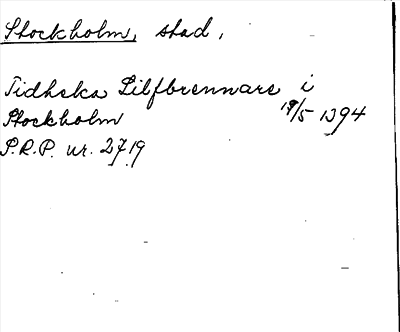 Stockholm, stad,
Tidheka Silfbrennare i
Stockholm 19/5 1394
P.R.P. nr. 2719